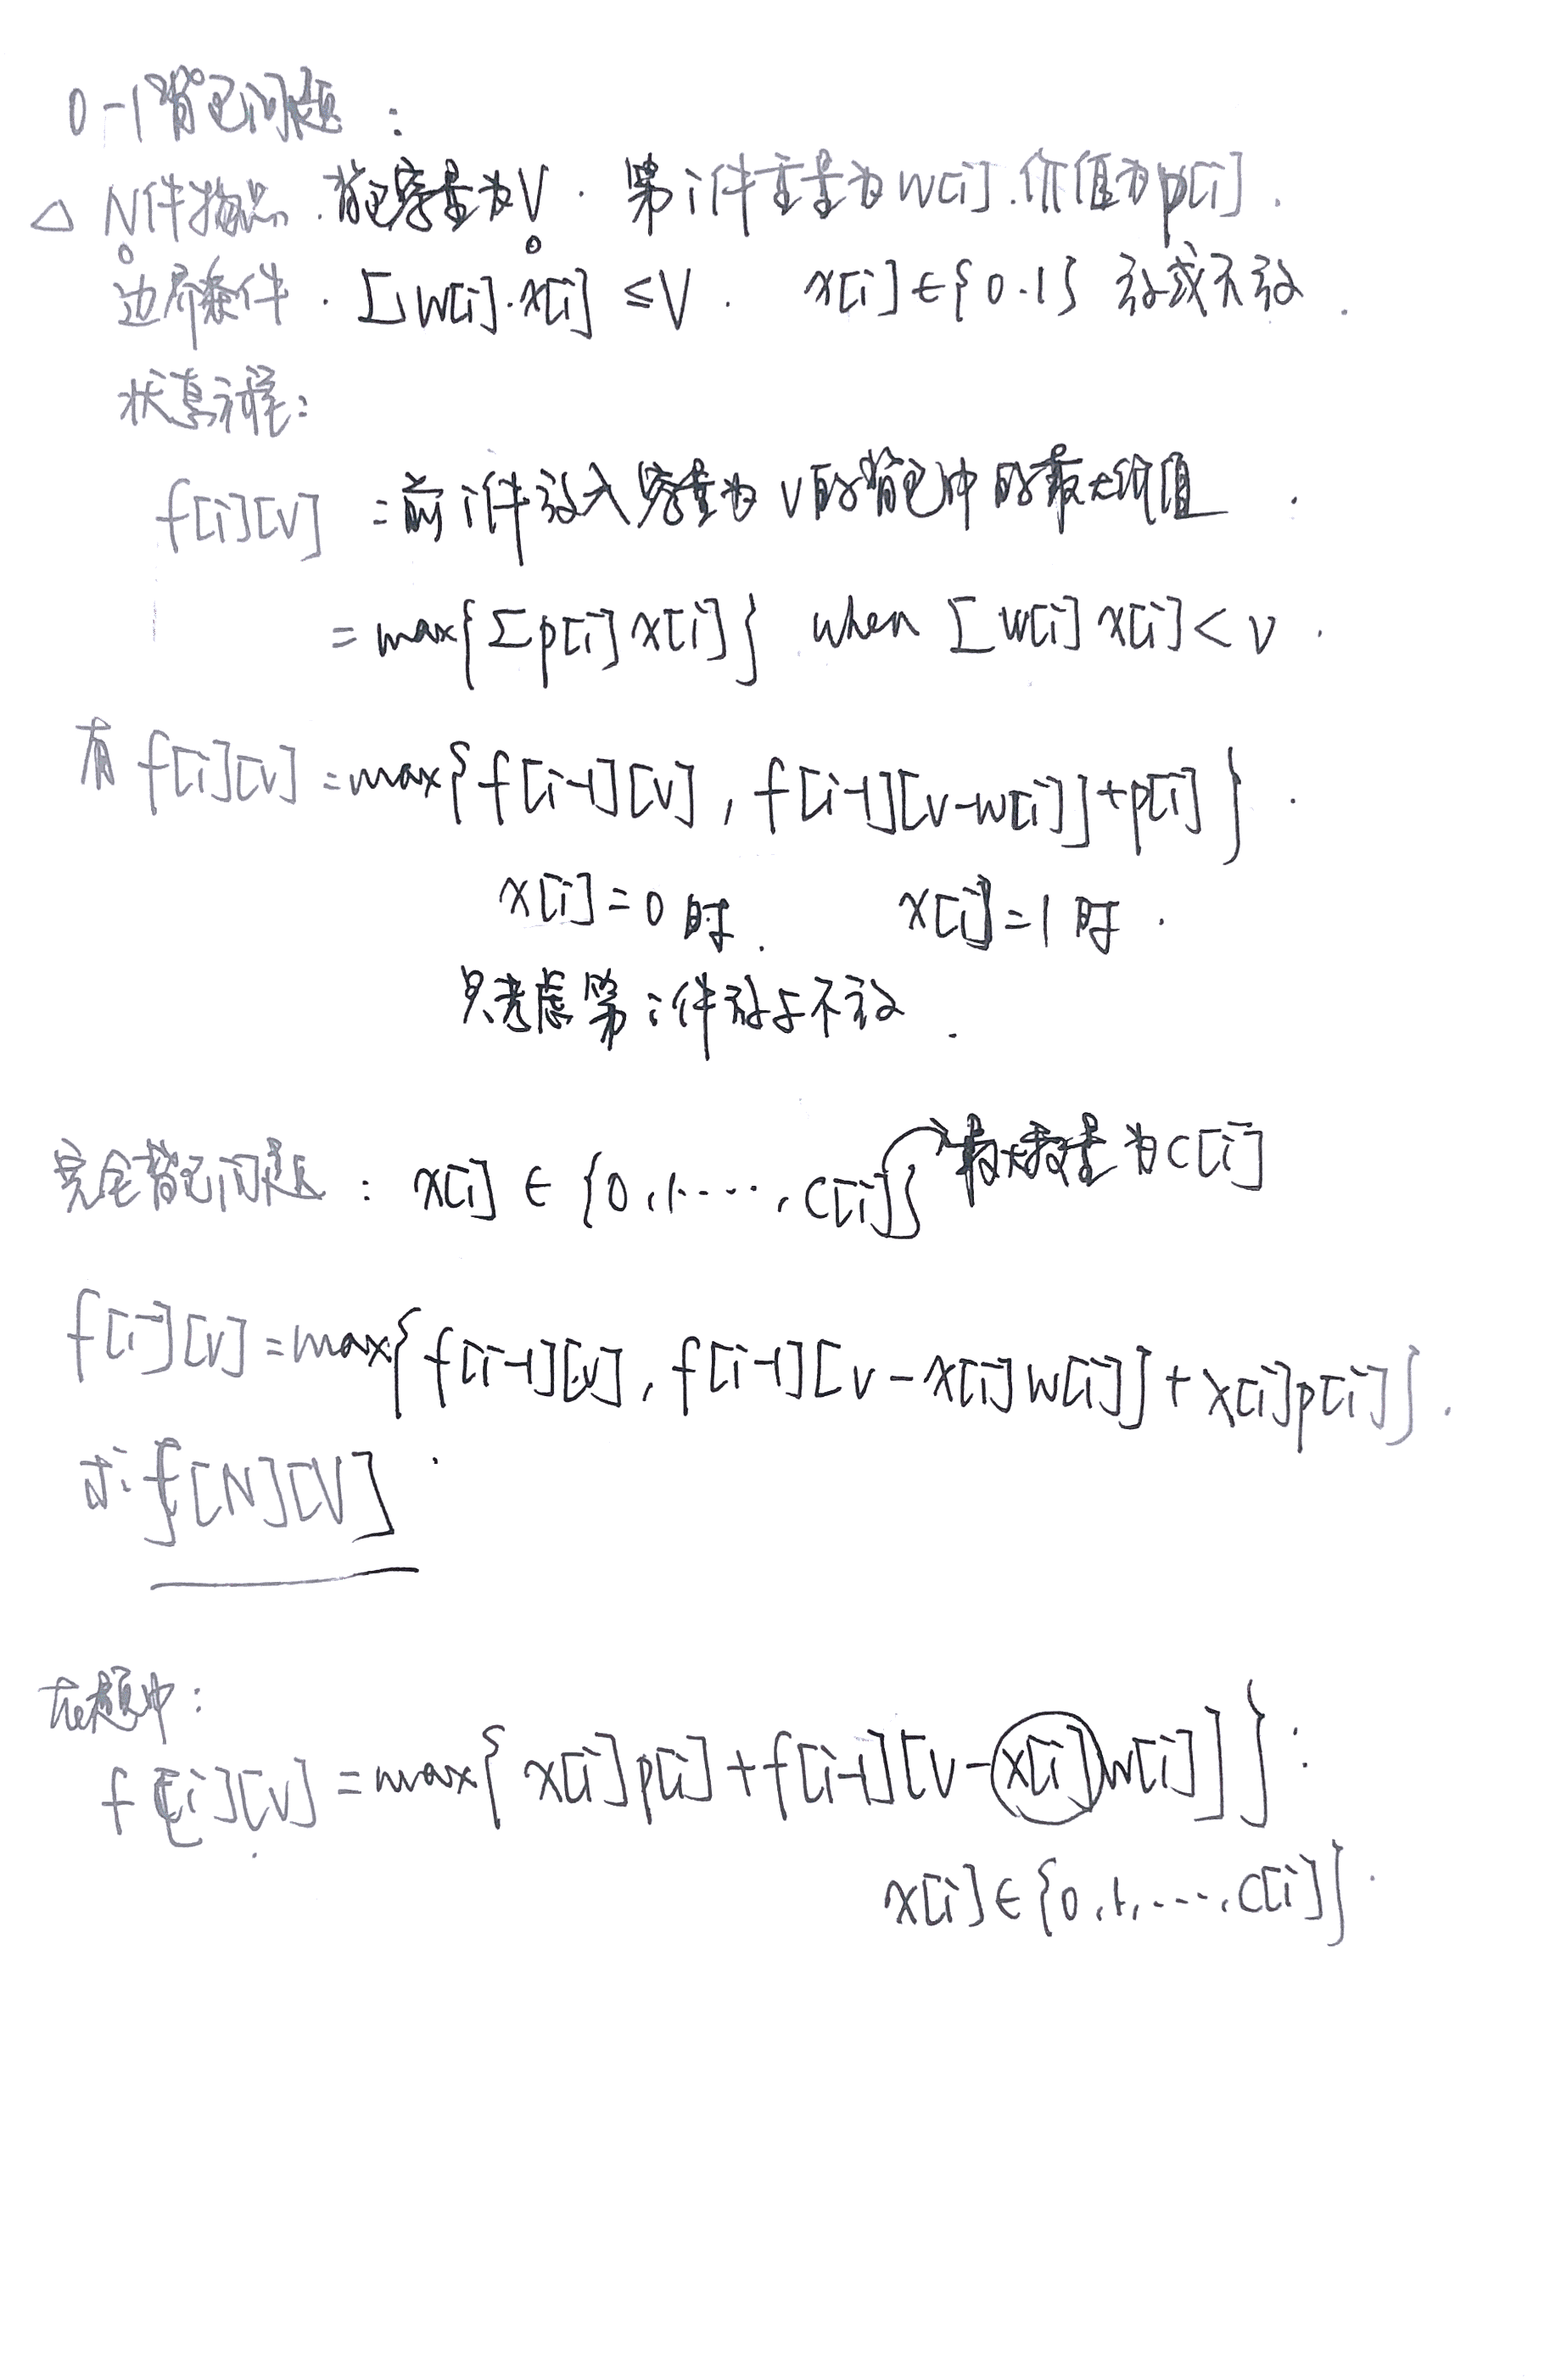 0-1背包问题：
△ N件物品. 背包容量为V. 第i件重量为w[i]. 价值为p[i].
边界条件. Σw[i]·x[i] ≤V. x[i]∈{0.1} 放或不放.
状态方程：
f[i][v] =前i件放入容量为v的背包中的最大价值.
=max{Σp[i]x[i]} when Σw[i]x[i]<v.
有f[i][v]=max{f[i-1][v], f[i-1][v-w[i]]+p[i]}.
x[i]=0时. x[i]=1时.
只考虑第i件放与不放.
完全背包问题：x[i]∈{0,1,……,c[i]} 最大数量为c[i]
f[i][v]=max{f[i-1][v], f[i-1][v-x[i]w[i]]+x[i]p[i]}.
求f[N][V].
在题中：
f[i][v]=max{x[i]p[i]+f[i-1][v-x[i]w[i]]}：
x[i]∈{0,1,……,c[i]}.